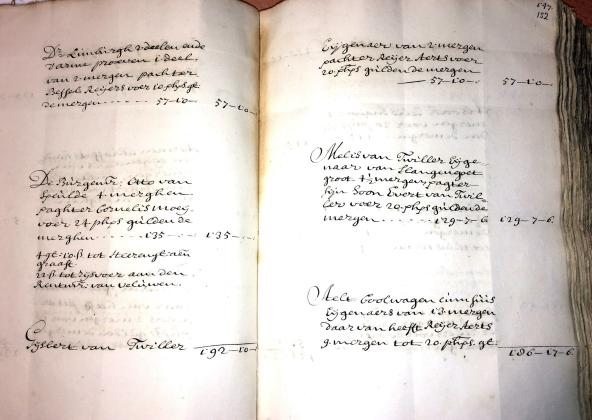 Dr Limburgh 2 deelen ende
van 2 mergen pachter
Bessel Reijers voer 10 phs gl
de mergen 57-10- 57-10-
De Burgemr: Otto van
Speulde 4 mergen
pachter Cornelis moeij
voer 24 phs gulden de
merghen 135- 135-
graaft
voer aan den
Rentmr: van veluwen.
Eijlert van Twiller 192-10-
147.
152
Eijgenaer van 2 mergen
pachter Reijer Aerts voer
20 phs gulden de mergen
57-10- 57-10-
Melis van Twiller Eijge
naer van Slangenegat
groot 4½ mergen pagter
sijn Soon Evert van Twil-
ler voer 20 phs gulden de
mergen 129-7-6 129-7-6
Aelt Coolwagen
Eijgenaers van 13 mergen
daar van heefft Reijer Aerts
9 mergen tot 20 phs gl
186-17-6